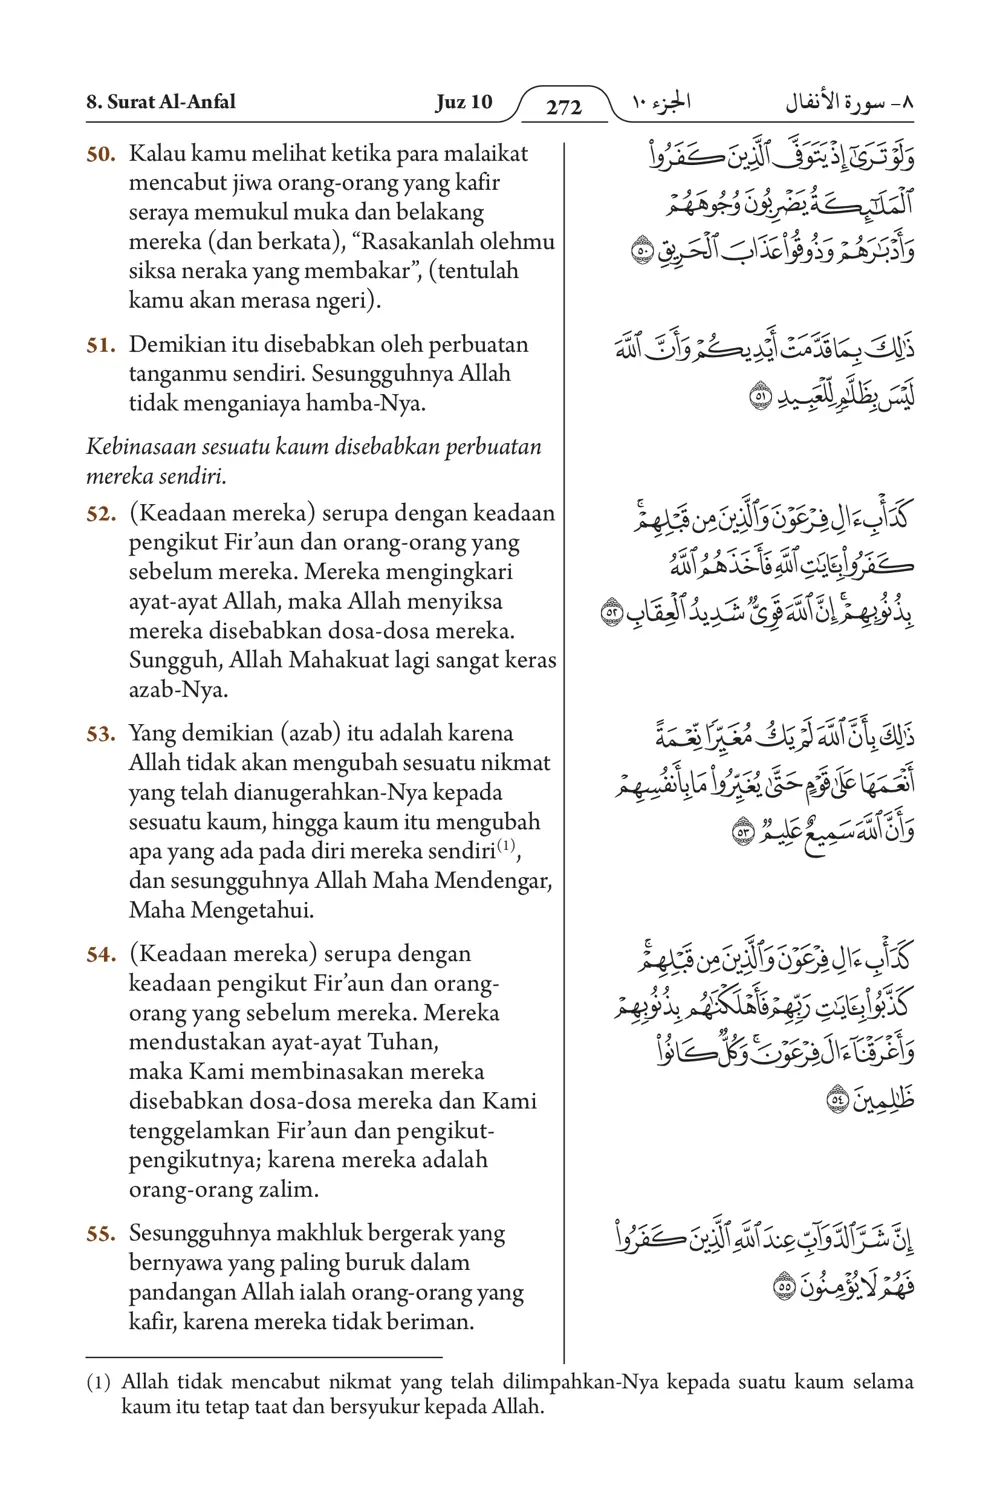 8. Surat Al-Anfal
Juz 10
272
الجزء ١٠
٨- سورة الأنفال
50. Kalau kamu melihat ketika para malaikat
mencabut jiwa orang-orang yang kafir
seraya memukul muka dan belakang
mereka (dan berkata), “Rasakanlah olehmu
siksa neraka yang membakar”, (tentulah
kamu akan merasa ngeri).
وَلَوْ تَرَىٰٓ إِذْ يَتَوَفَّى ٱلَّذِينَ كَفَرُوا۟
ٱلْمَلَـٰٓئِكَةُ يَضْرِبُونَ وُجُوهَهُمْ
وَأَدْبَـٰرَهُمْ وَذُوقُوا۟ عَذَابَ ٱلْحَرِيقِ ٥٠
51. Demikian itu disebabkan oleh perbuatan
tanganmu sendiri. Sesungguhnya Allah
tidak menganiaya hamba-Nya.
ذَٰلِكَ بِمَا قَدَّمَتْ أَيْدِيكُمْ وَأَنَّ ٱللَّهَ
لَيْسَ بِظَلَّـٰمٍ لِّلْعَبِيدِ ٥١
Kebinasaan sesuatu kaum disebabkan perbuatan
mereka sendiri.
52. (Keadaan mereka) serupa dengan keadaan
pengikut Fir’aun dan orang-orang yang
sebelum mereka. Mereka mengingkari
ayat-ayat Allah, maka Allah menyiksa
mereka disebabkan dosa-dosa mereka.
Sungguh, Allah Mahakuat lagi sangat keras
azab-Nya.
كَدَأْبِ ءَالِ فِرْعَوْنَ وَٱلَّذِينَ مِن قَبْلِهِمْ ۚ
كَفَرُوا۟ بِـَٔايَـٰتِ ٱللَّهِ فَأَخَذَهُمُ ٱللَّهُ
بِذُنُوبِهِمْ ۚ إِنَّ ٱللَّهَ قَوِىٌّ شَدِيدُ ٱلْعِقَابِ ٥٢
53. Yang demikian (azab) itu adalah karena
Allah tidak akan mengubah sesuatu nikmat
yang telah dianugerahkan-Nya kepada
sesuatu kaum, hingga kaum itu mengubah
apa yang ada pada diri mereka sendiri(1),
dan sesungguhnya Allah Maha Mendengar,
Maha Mengetahui.
ذَٰلِكَ بِأَنَّ ٱللَّهَ لَمْ يَكُ مُغَيِّرًا نِّعْمَةً
أَنْعَمَهَا عَلَىٰ قَوْمٍ حَتَّىٰ يُغَيِّرُوا۟ مَا بِأَنفُسِهِمْ
وَأَنَّ ٱللَّهَ سَمِيعٌ عَلِيمٌ ٥٣
54. (Keadaan mereka) serupa dengan
keadaan pengikut Fir’aun dan orang-
orang yang sebelum mereka. Mereka
mendustakan ayat-ayat Tuhan,
maka Kami membinasakan mereka
disebabkan dosa-dosa mereka dan Kami
tenggelamkan Fir’aun dan pengikut-
pengikutnya; karena mereka adalah
orang-orang zalim.
كَدَأْبِ ءَالِ فِرْعَوْنَ وَٱلَّذِينَ مِن قَبْلِهِمْ ۚ
كَذَّبُوا۟ بِـَٔايَـٰتِ رَبِّهِمْ فَأَهْلَكْنَـٰهُم بِذُنُوبِهِمْ
وَأَغْرَقْنَآ ءَالَ فِرْعَوْنَ ۚ وَكُلٌّ كَانُوا۟
ظَـٰلِمِينَ ٥٤
55. Sesungguhnya makhluk bergerak yang
bernyawa yang paling buruk dalam
pandangan Allah ialah orang-orang yang
kafir, karena mereka tidak beriman.
إِنَّ شَرَّ ٱلدَّوَآبِّ عِندَ ٱللَّهِ ٱلَّذِينَ كَفَرُوا۟
فَهُمْ لَا يُؤْمِنُونَ ٥٥
(1) Allah tidak mencabut nikmat yang telah dilimpahkan-Nya kepada suatu kaum selama
kaum itu tetap taat dan bersyukur kepada Allah.